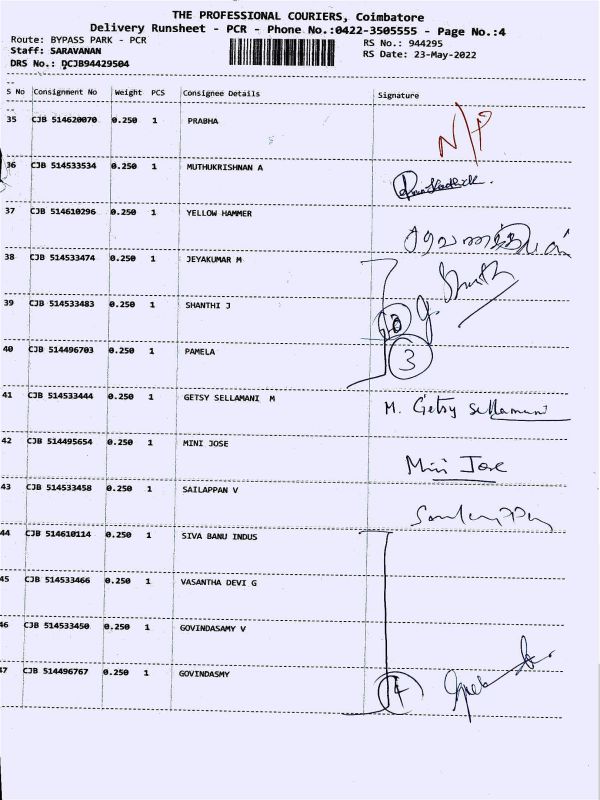 THE PROFESSIONAL COURIERS, Coimbatore
Delivery Runsheet - PCR - Phone No.:0422-3505555 - Page No.:4
Route: BYPASS PARK - PCR
RS No.: 944295
Staff: SARAVANAN
RS Date: 23-May-2022
DRS No.: DCJB94429504
S No Consignment No Weight PCS Consignee Details Signature
35 CJB 514620070 0.250 1 PRABHA N/P
36 CJB 514533534 0.250 1 MUTHUKRISHNAN A
37 CJB 514610296 0.250 1 YELLOW HAMMER
38 CJB 514533474 0.250 1 JEYAKUMAR M
39 CJB 514533483 0.250 1 SHANTHI J
40 CJB 514496703 0.250 1 PAMELA 3
41 CJB 514533444 0.250 1 GETSY SELLAMANI M M. Getsy Sellamani
42 CJB 514495654 0.250 1 MINI JOSE Mini Jose
43 CJB 514533458 0.250 1 SAILAPPAN V
44 CJB 514610114 0.250 1 SIVA BANU INDUS
45 CJB 514533466 0.250 1 VASANTHA DEVI G
46 CJB 514533450 0.250 1 GOVINDASAMY V
47 CJB 514496767 0.250 1 GOVINDASMY 4